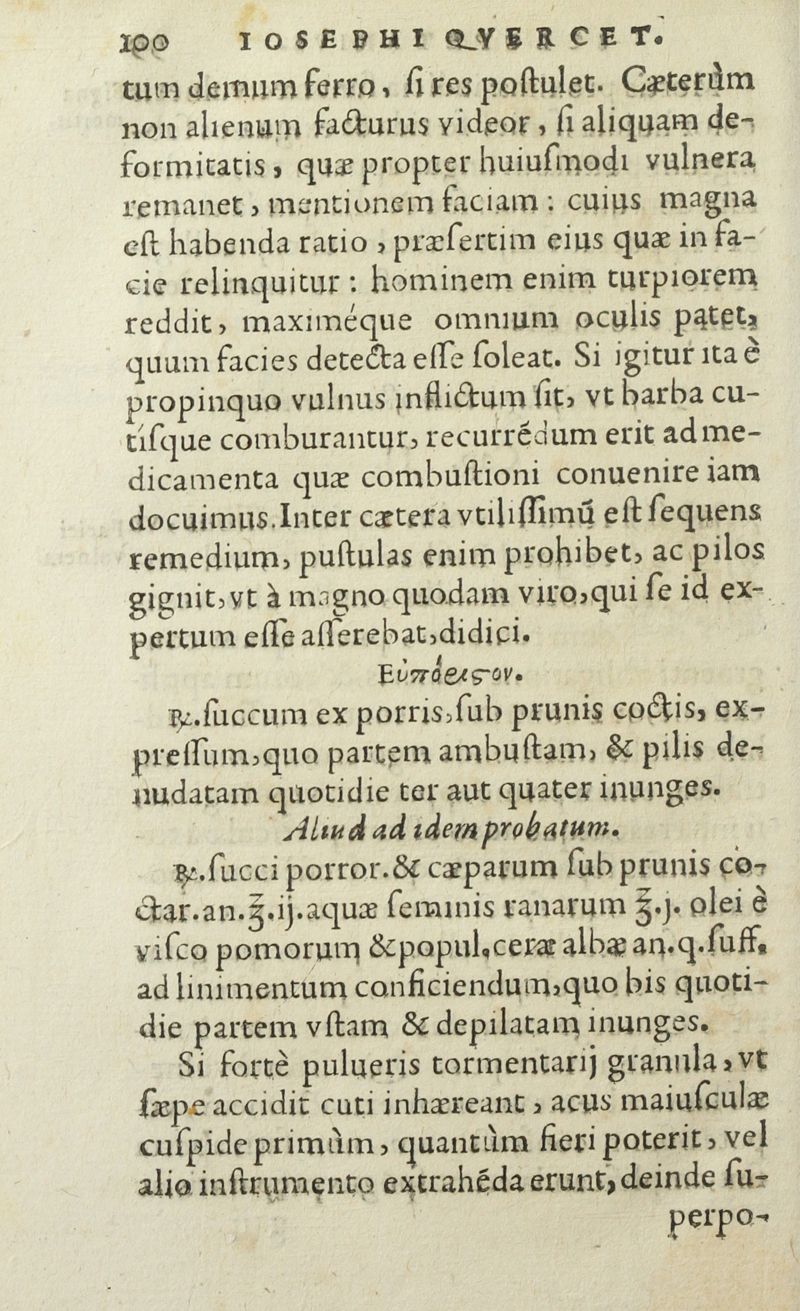 100 IOSEPHI QVERCET.
tum demum ferro, ſi res poſtulet. Cæterùm
non alienum facturus videor, ſi aliquam de-
formitatis, quæ propter huiuſmodi vulnera
remanet, mentionem faciam: cuius magna
eſt habenda ratio, præſertim eius quæ in fa-
cie relinquitur: hominem enim turpiorem
reddit, maximéque omnium oculis patet,
quum facies detecta eſſe ſoleat. Si igitur ita è
propinquo vulnus inflictum ſit, vt barba cu-
tíſque comburantur, recurrẽdum erit ad me-
dicamenta quæ combuſtioni conuenire iam
docuimus. Inter cætera vtiliſſimũ eſt ſequens
remedium, puſtulas enim prohibet, ac pilos
gignit, vt à magno quodam viro, qui ſe id ex-
pertum eſſe aſſerebat, didici.
Εὐπόριϛον.
℞. ſuccum ex porris, ſub prunis coctis, ex-
preſſum, quo partem ambuſtam, & pilis de-
nudatam quotidie ter aut quater inunges.
Aliud ad idem probatum.
℞. ſucci porror. & cæparum ſub prunis co-
ctar. an. ℥. ij. aquæ ſeminis ranarum ℥. j. olei è
viſco pomorum & popul, ceræ albæ an. q. ſuff.
ad linimentum conficiendum, quo bis quoti-
die partem vſtam & depilatam inunges.
Si fortè pulueris tormentarij granula, vt
ſæpe accidit cuti inhæreant, acus maiuſculæ
cuſpide primùm, quantùm fieri poterit, vel
alio inſtrumento extrahẽda erunt, deinde ſu-
perpo-